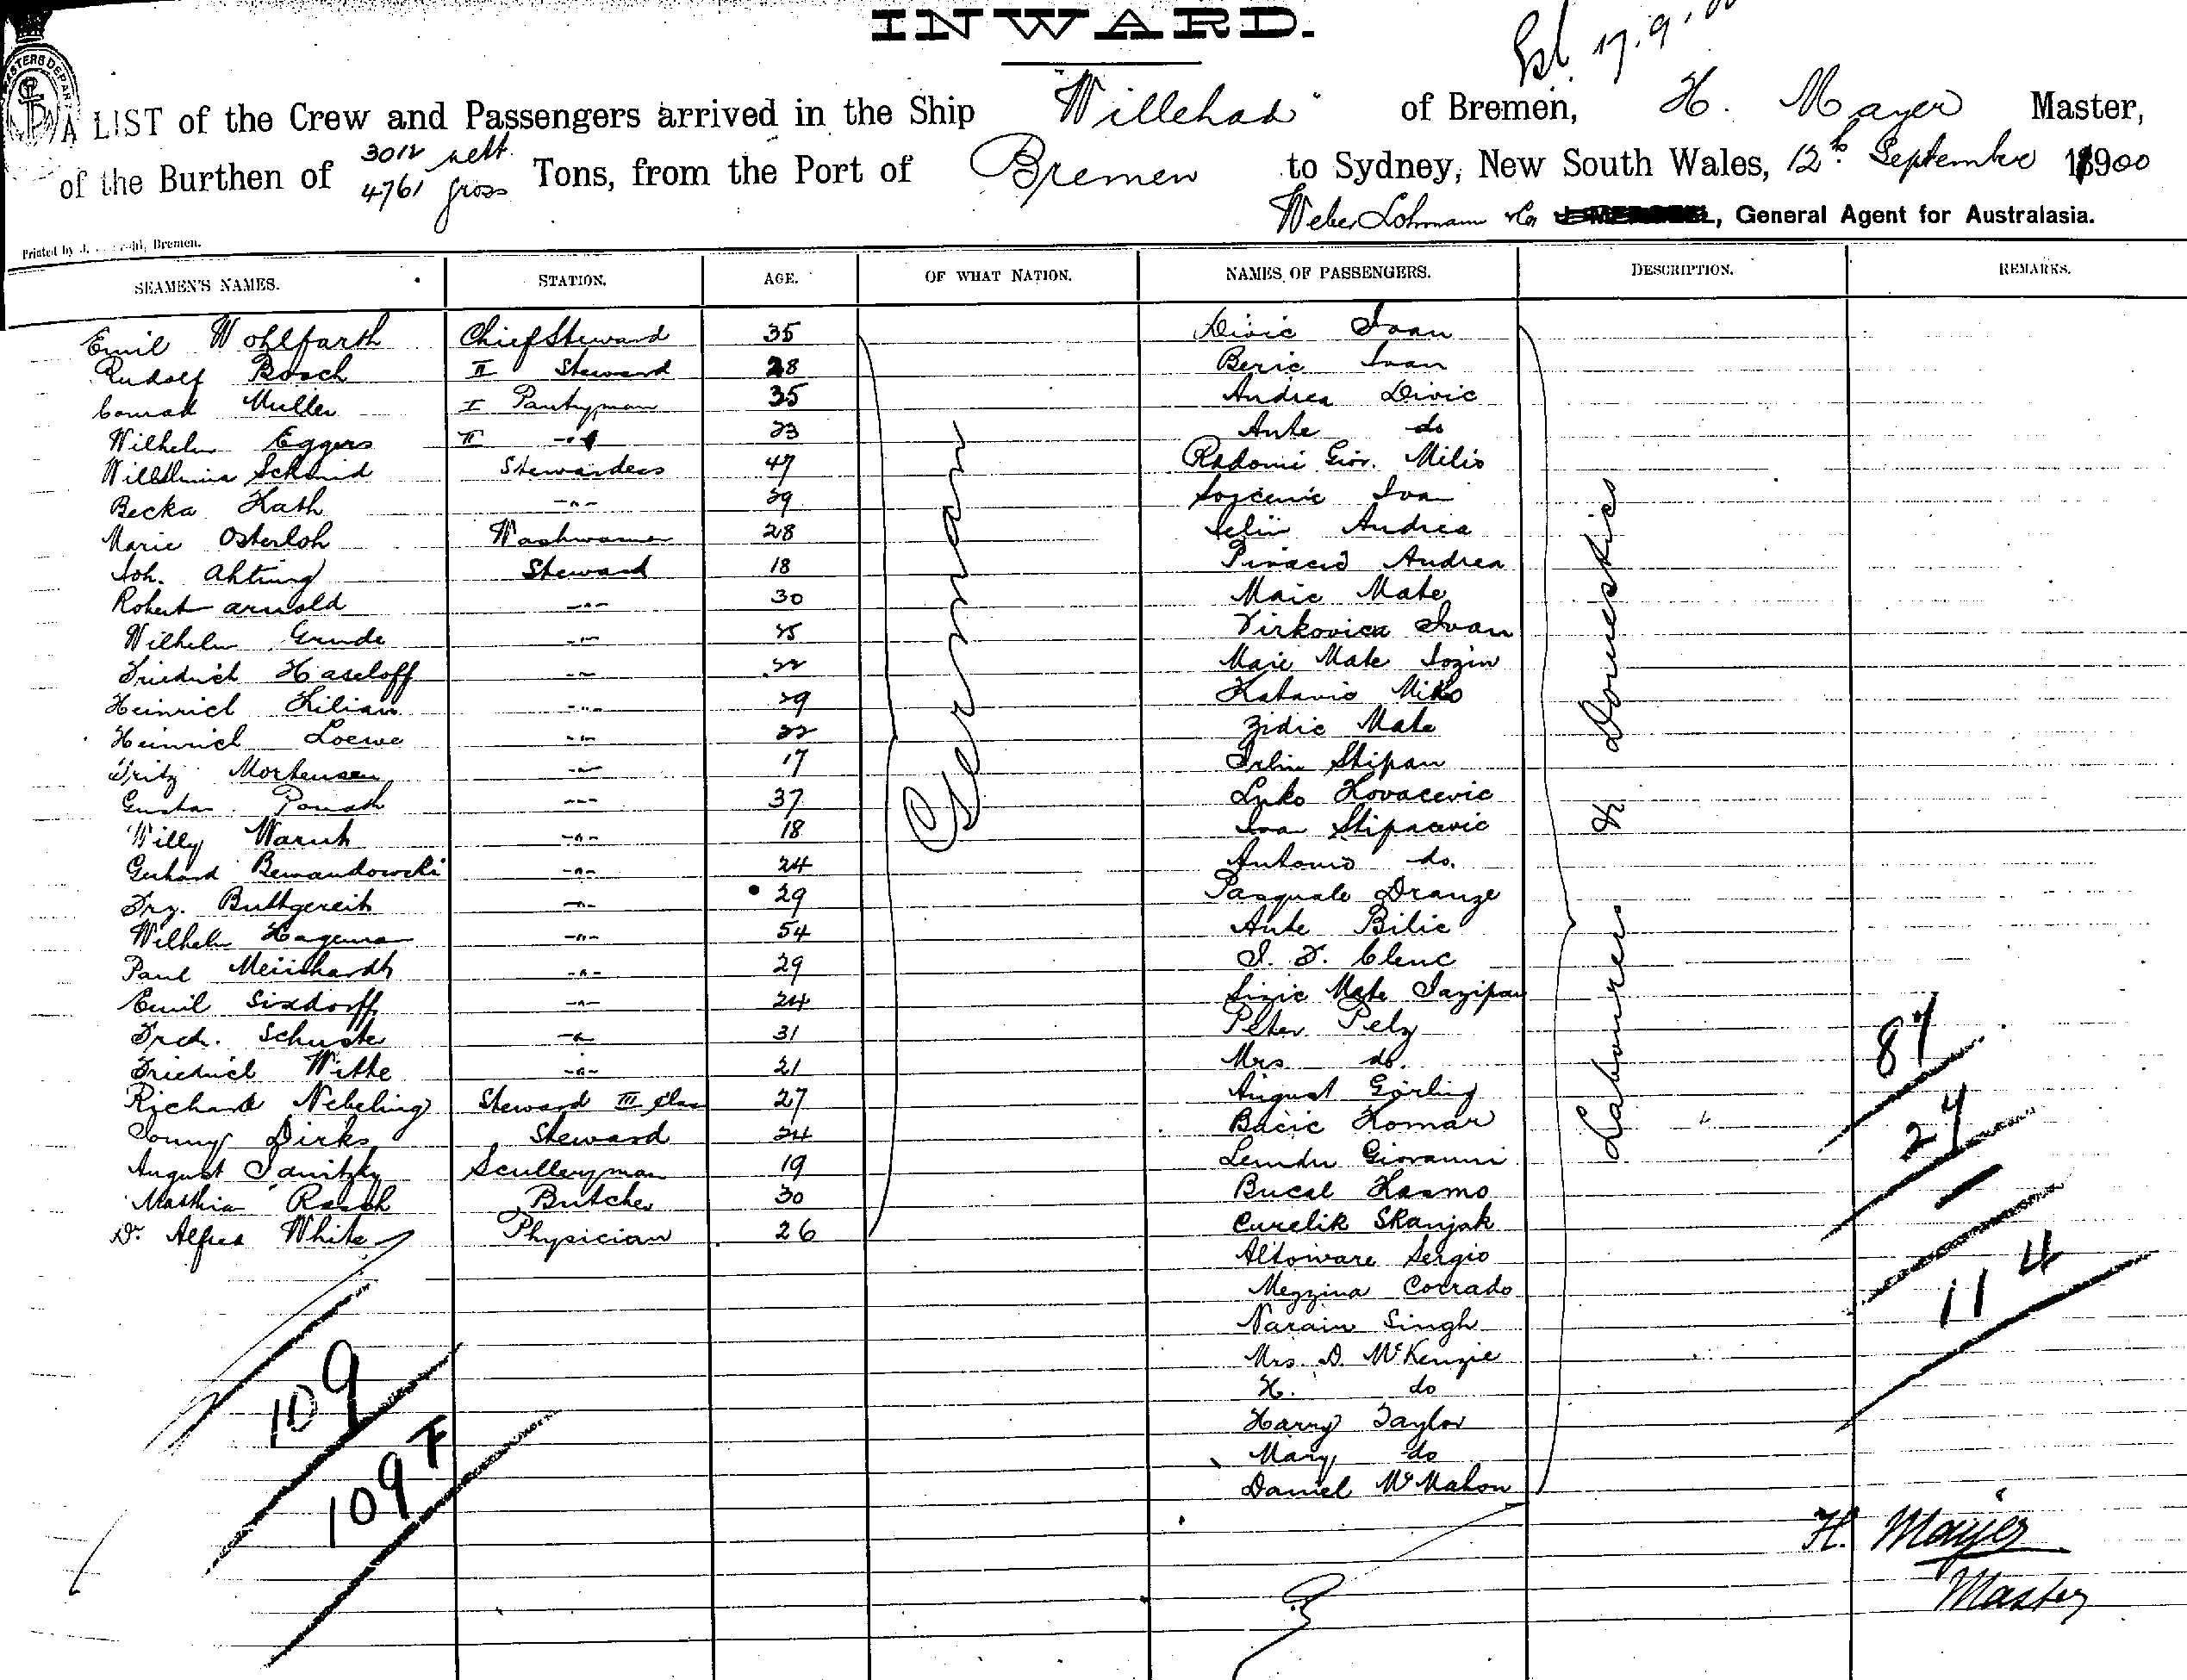 INWARD.
17.9.00
A LIST of the Crew and Passengers arrived in the Ship "Willehad" of Bremen, H. Mayer Master,
of the Burthen of 3012 nett. 4761 gross Tons, from the Port of Bremen to Sydney, New South Wales, 12th September 1900
Weber Lohmann & Co, General Agent for Australasia.
Printed by J. Bremen.
SEAMEN'S NAMES. STATION. AGE. OF WHAT NATION. NAMES OF PASSENGERS. DESCRIPTION. REMARKS.
German
Labourers & Domestics
Emil Wohlfarth Chief Steward 35 Divic Ivan
Rudolf Bosch II Steward 28 Beric Ivan
Conrad Muller I Pantryman 35 Andrea Divic
Wilhelm Eggers II -"- 23 Ante do
Wilhelmina Schmid Stewardess 47 Radomi Giov. Milis
Becka Kath -"- 29 Ivan
Marie Osterloh Washwoman 28 Andrea
Joh. Ahting Steward 18 Andrea
Robert Arnold -"- 30 Maic Mate
Wilhelm Grude -"- 25 Virkovica Ivan
Friedrich Haseloff -"- 22 Maic Mate Jozin
Heinrich Kilian -"- 29 Katavic Miko
Heinrich Loewe -"- 22 Zidic Mate
Fritz Mortensen -"- 17 Stipan
Gustav -"- 37 Luko Kovacevic
Willy -"- 18 Ivan Stipacevic
Gerhard Bemandowski -"- 24 Antonio do.
Frz. Buttgereit -"- 29 Pasquale Dranze
Wilhelm Hagema -"- 54 Ante Bilic
Paul Meinhardt -"- 29 I. F. Clenc
Emil Sixdorff -"- 24 Mate
Frdr. Schuste -"- 31 Peter Pelz
Friedrich Witte -"- 21 Mrs do.
Richard Nebeling Steward III Class 27 August Görling
Conny Dirks Steward 24 Bacic Komar
August Janitzky Scullery man 19 Giovanni
Mathia Rasch Butcher 30 Bucal Kosmo
Dr. Alfred White Physician 26 Curelik Skanjak
Altoware Sergio
Mezzina Corrado
Narain Singh
Mrs. D. McKenzie
H. do
Harry Taylor
Mary do
Daniel McMahon
87
27
114
109
109 F
H. Mayer
Master